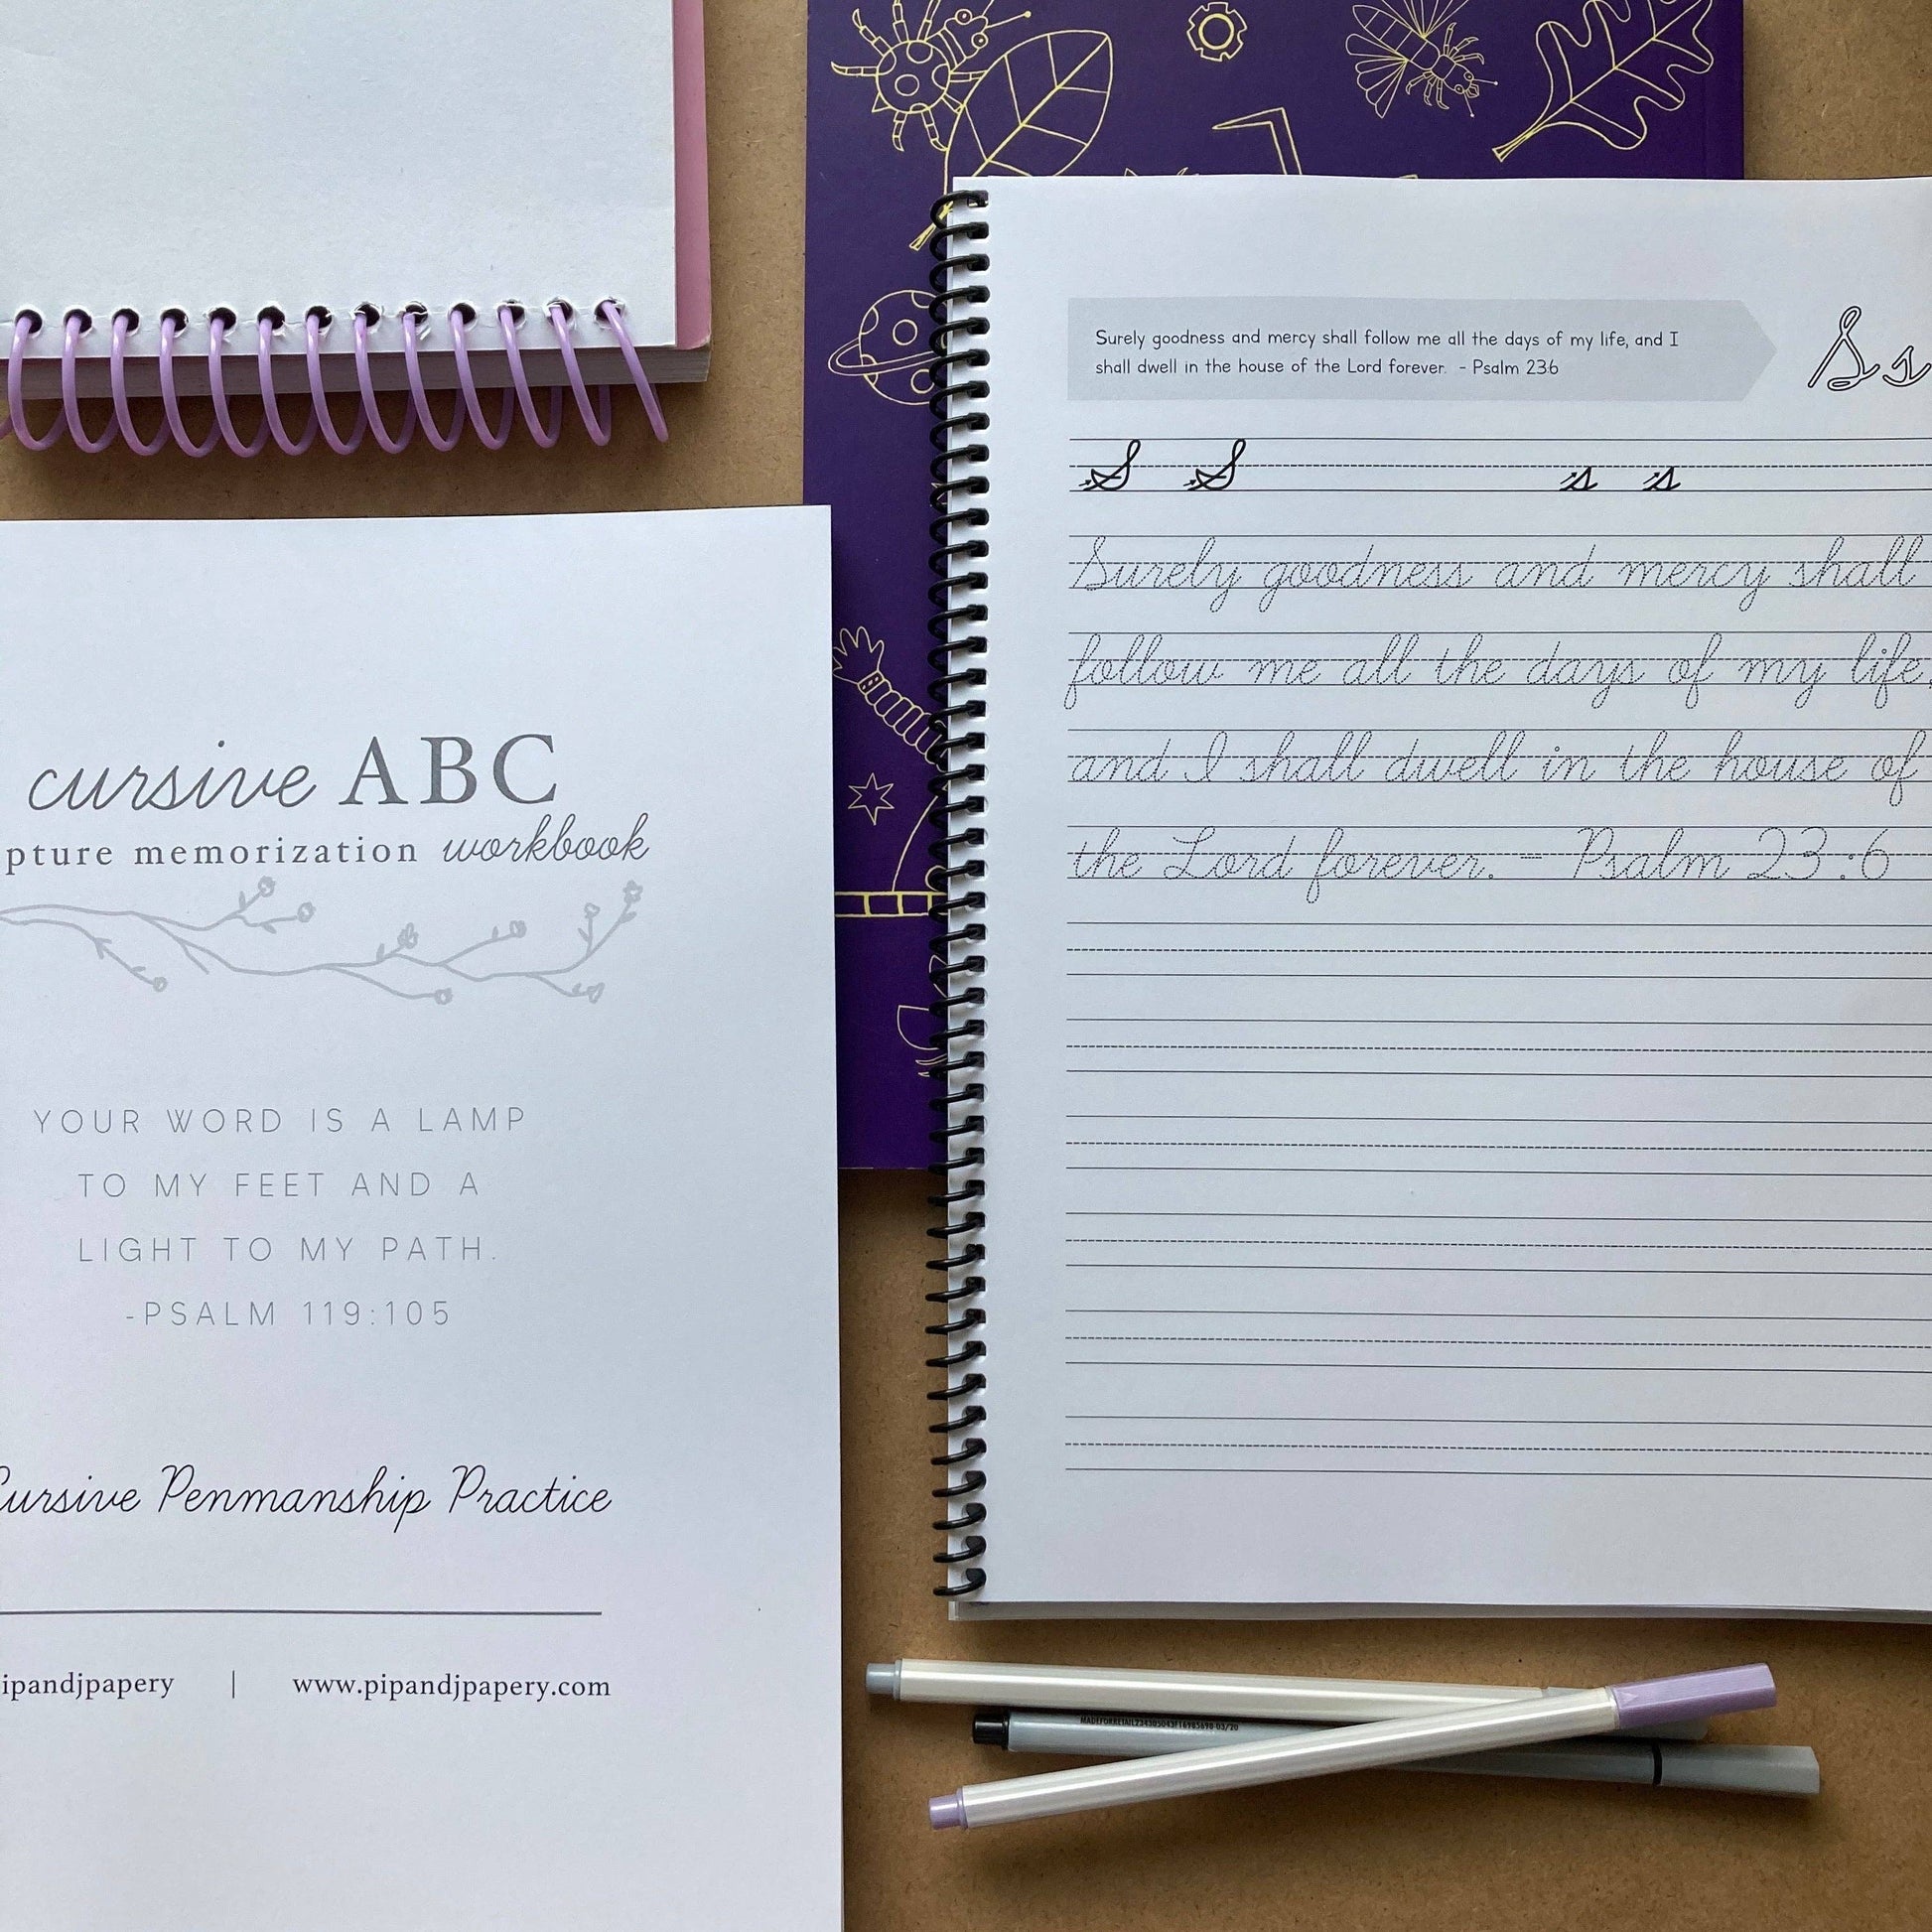 cursive ABC
pture memorization workbook
YOUR WORD IS A LAMP
TO MY FEET AND A
LIGHT TO MY PATH.
-PSALM 119:105
Cursive Penmanship Practice
ipandjpapery | www.pipandjpapery.com
Surely goodness and mercy shall follow me all the days of my life, and I
shall dwell in the house of the Lord forever. - Psalm 23:6
Ss
S S s s
Surely goodness and mercy shall
follow me all the days of my life,
and I shall dwell in the house of
the Lord forever. - Psalm 23:6